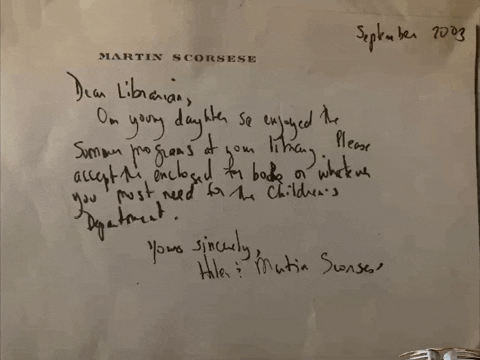 September 2003
MARTIN SCORSESE
Dear Librarian,
Our young daughter so enjoyed the
Summer programs at your library. Please
accept the enclosed for books or whatever
you most need for the Children's
Department.
Yours sincerely,
& Martin Scorsese